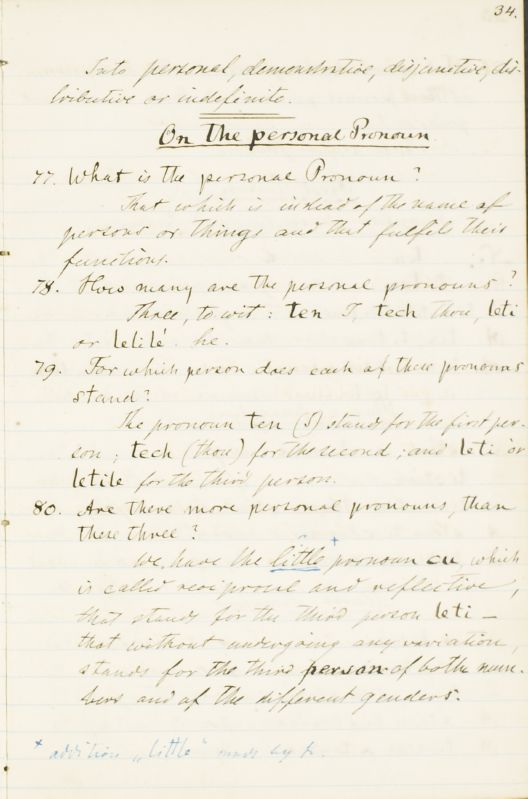 34.
Into personal, demonstrative, disjunctive, dis-
tributive or indefinite.
On the personal Pronoun
77. What is the personal Pronoun?
That which is instead of the name of
persons or things and that fulfils their
functions.
78. How many are the personal pronouns?
Three, to wit: ten I, tech thou, leti
or letilé. he.
79. For which person does each of these pronouns
stand?
The pronoun ten (I) stands for the first per-
son; tech (thou) for the second; and leti or
letile for the third person.
80. Are there more personal pronouns, than
these three?
We have the little + pronoun cu, which
is called reciprocal and reflective,
that stands for the third person leti —
that without undergoing any variation,
stands for the third person of both num-
bers and of the different genders.
+ addition "little" made by